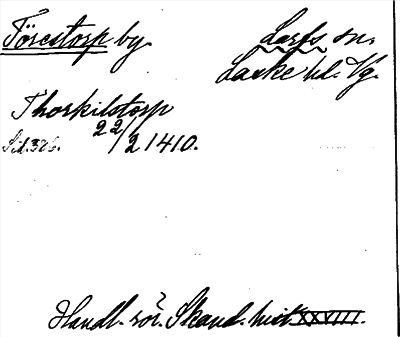 Törestorp by.
Larfs sn.
Laske hd. Vg.
Thorkilstorp
Sid. 326. 22/2 1410.
Handl. rör. Skand. hist. XXVIII.